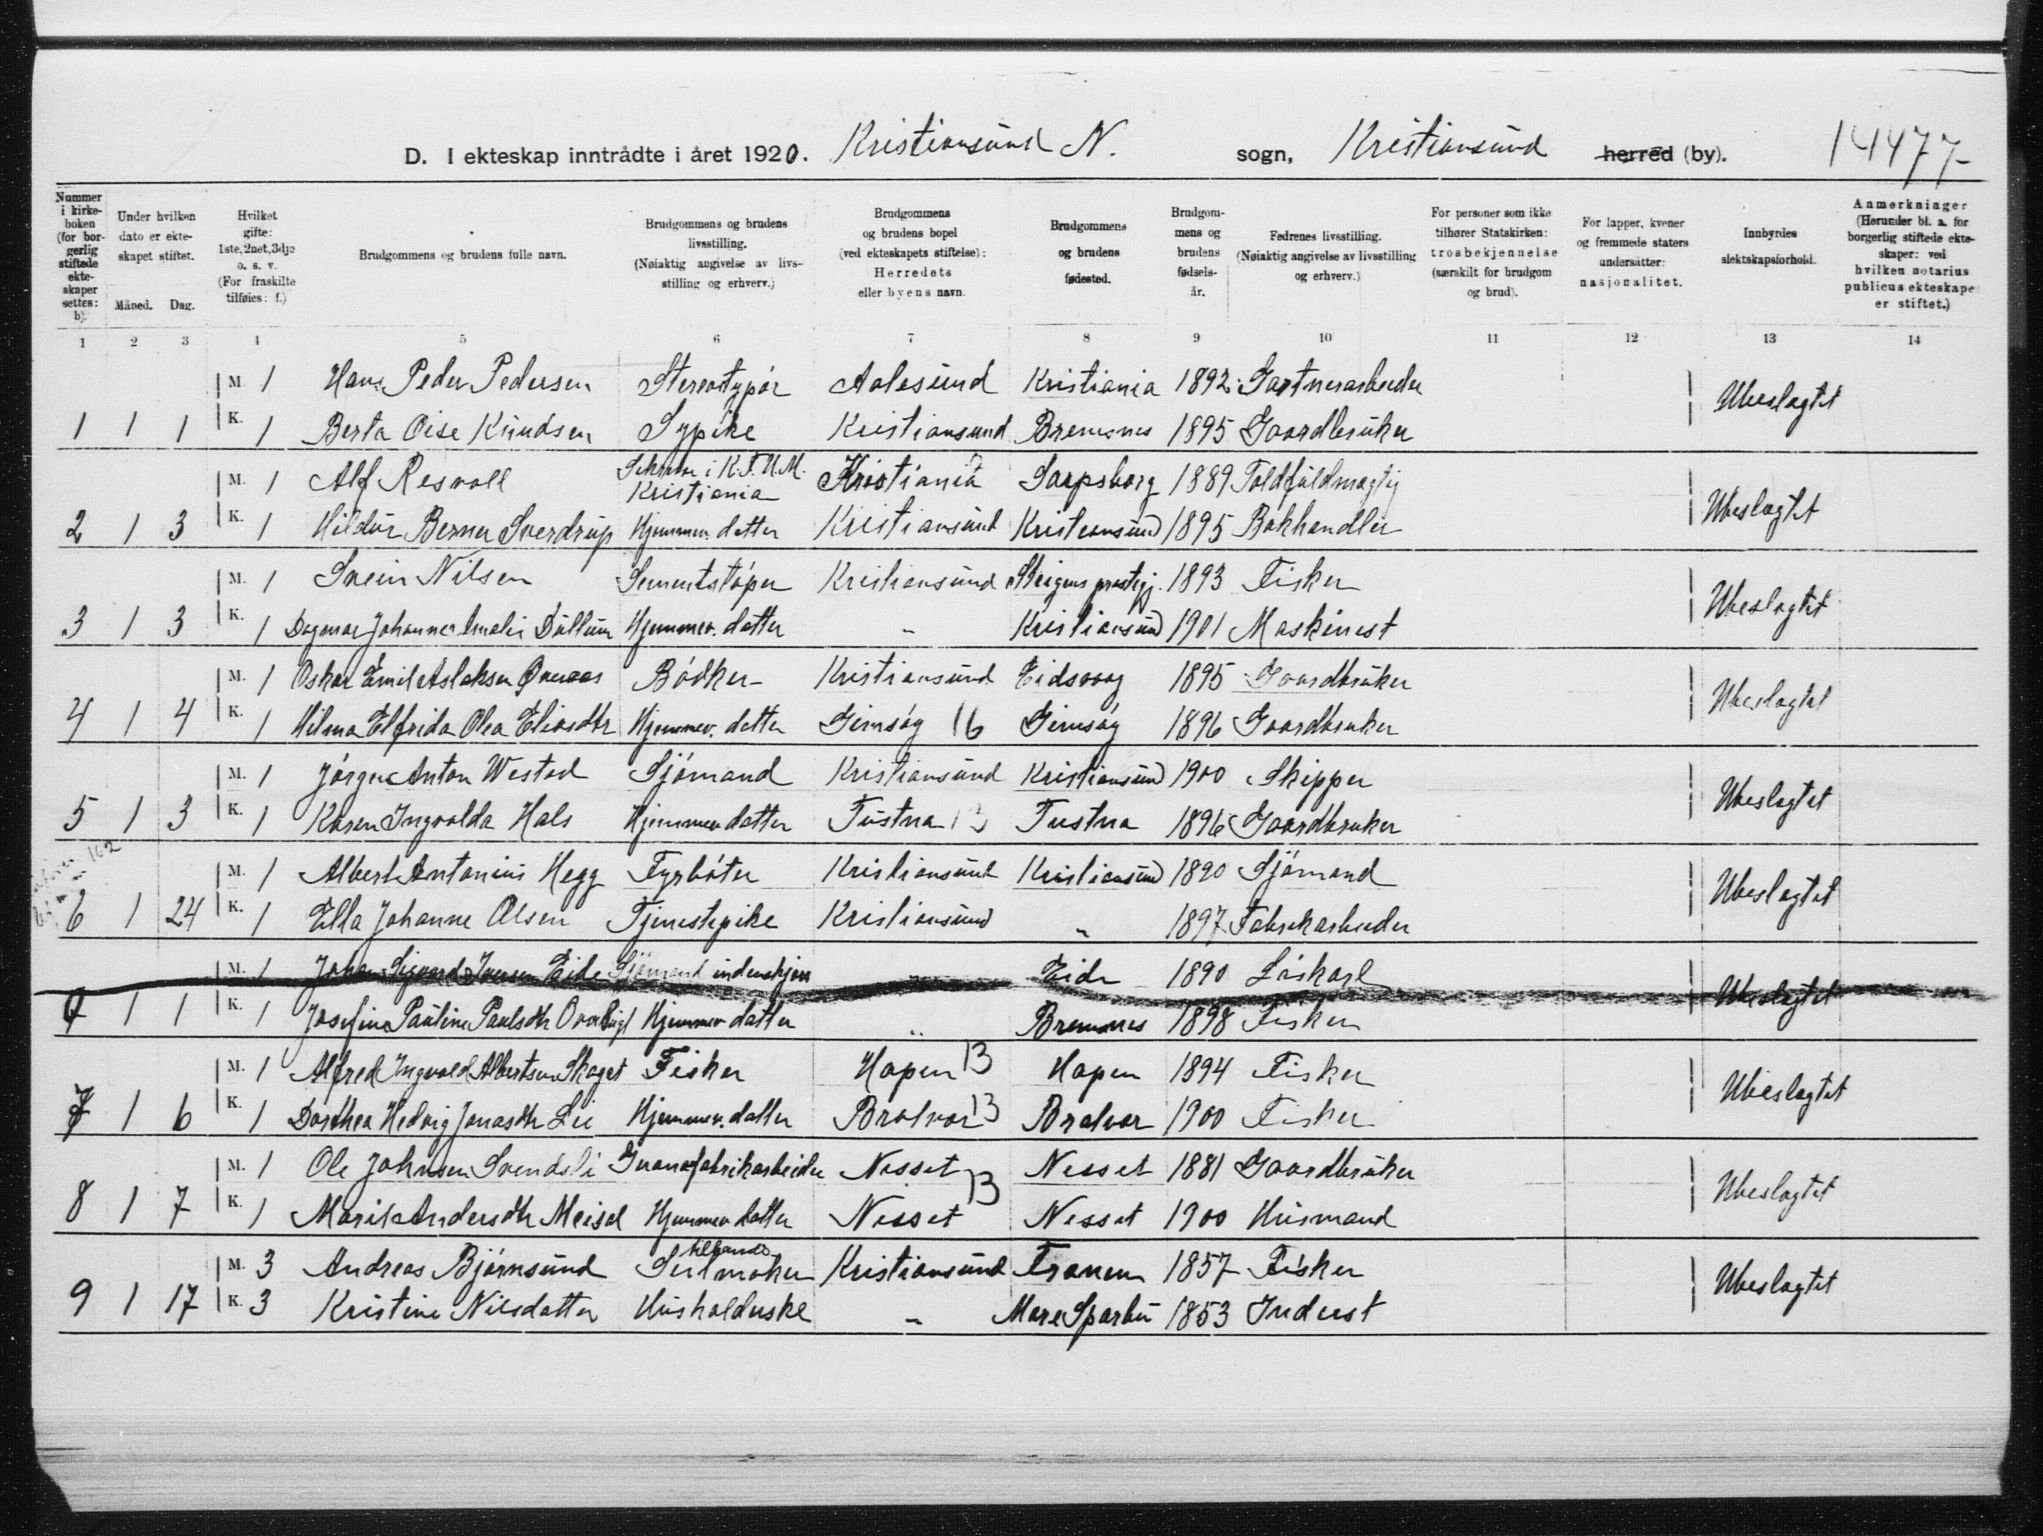 D. I ekteskap inntrådte i året 1920. Kristiansund N. sogn, Kristiansund herred (by). 14477-
Nummer i kirkeboken (for borgerlig stiftede ekteskaper settes: b).
Under hvilken dato er ekteskapet stiftet. Måned. Dag.
Hvilket gifte: 1ste, 2net, 3dje o. s. v. (For fraskilte tilføies: f.)
Brudgommens og brudens fulle navn.
Brudgommens og brudens livsstilling. (Nøiaktig angivelse av livsstilling og erhverv.)
Brudgommens og brudens bopel (ved ekteskapets stiftelse): Herredets eller byens navn.
Brudgommens og brudens fødested.
Brudgommens og brudens fødselsår.
Fedrenes livsstilling. (Nøiaktig angivelse av livsstilling og erhverv.)
For personer som ikke tilhører Statskirken: trosbekjennelse (særskilt for brudgom og brud).
For lapper, kvener og fremmede staters undersåtter: nasjonalitet.
Innbyrdes slektskapsforhold.
Anmerkninger (Herunder bl. a. for borgerlig stiftede ekteskaper: ved hvilken notarius publicus ekteskapet er stiftet.)
1 2 3 4 5 6 7 8 9 10 11 12 13 14
M. 1 Hans Peder Pedersen Stereotypør Aalesund Kristiania 1892 Gartnerarbeider Ubeslagtet
1 1 1 K. 1 Berta Oise Knudsen Sypike Kristiansund Bremsnes 1895 Gaardbruker
M. 1 Alf Resvoll i K.F.U.M. Kristiania Kristiania Sarpsborg 1889 Toldfuldmægtig Ubeslagtet
2 1 3 K. 1 Hildur Berner Sverdrup Hjemmev. datter Kristiansund Kristiansund 1895 Bokhandler
M. 1 Svein Nilsen Sementstøper Kristiansund Steigens prestegj. 1893 Fisker Ubeslagtet
3 1 3 K. 1 Dagmar Johanne Amalie Dullum Hjemmev. datter " Kristiansund 1901 Maskinist
M. 1 Oskar Emil Aslaksen Øveraas Bødker Kristiansund Eidsvaag 1895 Gaardbruker Ubeslagtet
4 1 4 K. 1 Hilma Elfrida Olea Eliasdtr Hjemmev. datter Gimsøy 16 Gimsøy 1896 Gaardbruker
M. 1 Jørgen Anton Westad Sjømand Kristiansund Kristiansund 1900 Skipper Ubeslagtet
5 1 3 K. 1 Karen Ingvalda Hals Hjemmev datter Tustna 13 Tustna 1896 Gaardbruker
M. 1 Albert Antonius Hegg Fyrbøter Kristiansund Kristiansund 1890 Sjømand Ubeslagtet
6 1 24 K. 1 Ella Johanne Olsen Tjenestepike Kristiansund " 1897 Fabrikarbeider
M. 1 Johan Sigvard Iversen Eide Sjømand indenskjærs " Eide 1890 Løskarl Ubeslagtet
7 1 1 K. 1 Josefine Pauline Paulsdtr Hjemmev datter " Bremsnes 1898 Fisker
M. 1 Alfred Ingvald Albertsen Skaget Fisker Hopen 13 Hopen 1894 Fisker Ubeslagtet
7 1 6 K. 1 Dorthea Hedvig Jonasdtr Lie Hjemmev. datter Bratvær 13 Bratvær 1900 Fisker
M. 1 Ole Johnsen Svendsli Guanofabrikarbeider Nesset Nesset 1881 Gaardbruker Ubeslagtet
8 1 7 K. 1 Marit Andersdtr Meisal Hjemmev datter Nesset 13 Nesset 1900 Husmand
M. 3 Andreas Bjørnsund Seilmaker Kristiansund Frænen 1857 Fisker Ubeslagtet
9 1 17 K. 3 Kristine Nilsdatter Husholderske " Mære Sparbu 1853 Inderst